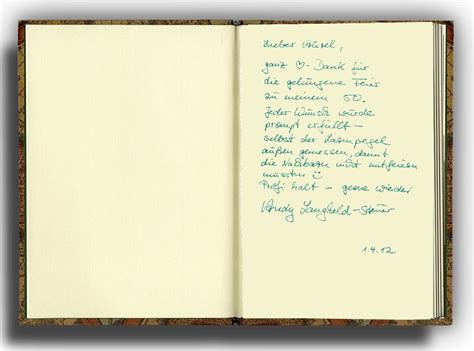 Lieber Marcel,
ganz ♡-Dank für
die gelungene Feier
zu meinem 50.
Jeder Wunsch wurde
prompt erfüllt –
selbst der Lärmpegel
außen gemessen, damit
die Nachbarn nicht mitfeiern
mussten ☺
Profi halt – gerne wieder
Andy
1.4.12